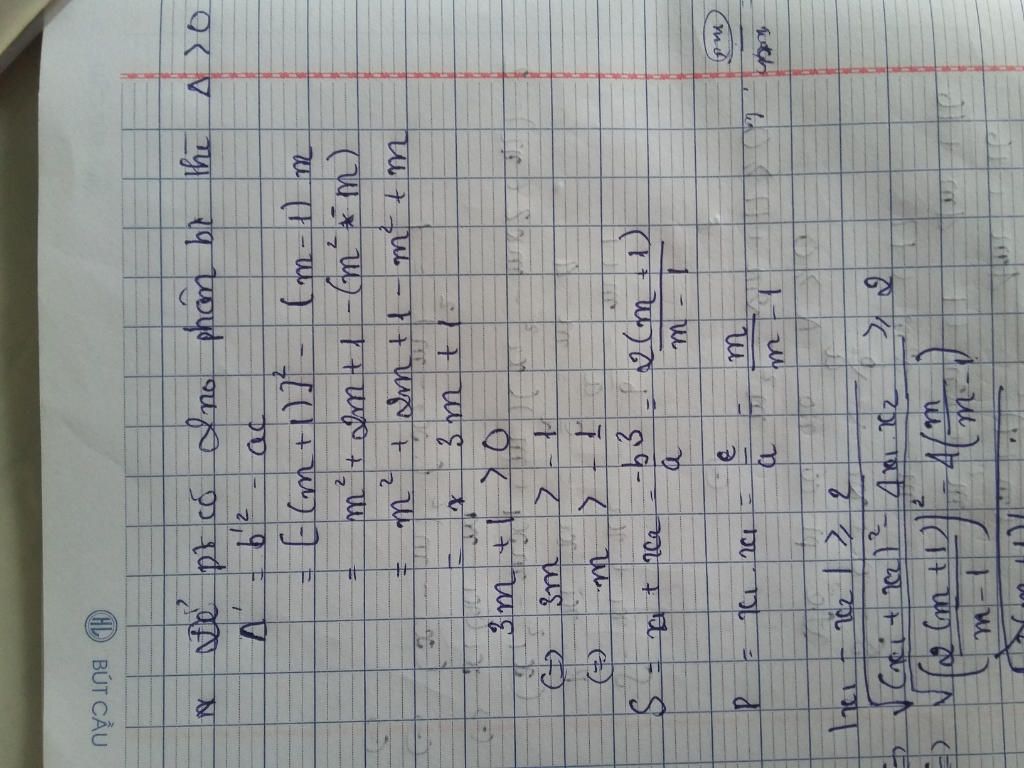 BÚT CẦU
Để pt có 2 no phân bt thì Δ > 0
Δ' = b'² - ac
= [-(m+1)]² - (m-1) m
= m² + 2m + 1 - (m² - m)
= m² + 2m + 1 - m² + m
= 3m + 1
3m + 1 > 0
(=) 3m > -1
(=) m > -1
S = x₁ + x₂ = -b/a = 2(m+1)/m-1
P = x₁ . x₁ = c/a = m/m-1
|x₁ - x₂| ≥ 2
√(x₁ + x₂)² - 4x₁.x₂ ≥ 2
√(2(m+1)/m-1)² - 4(m/m-1)